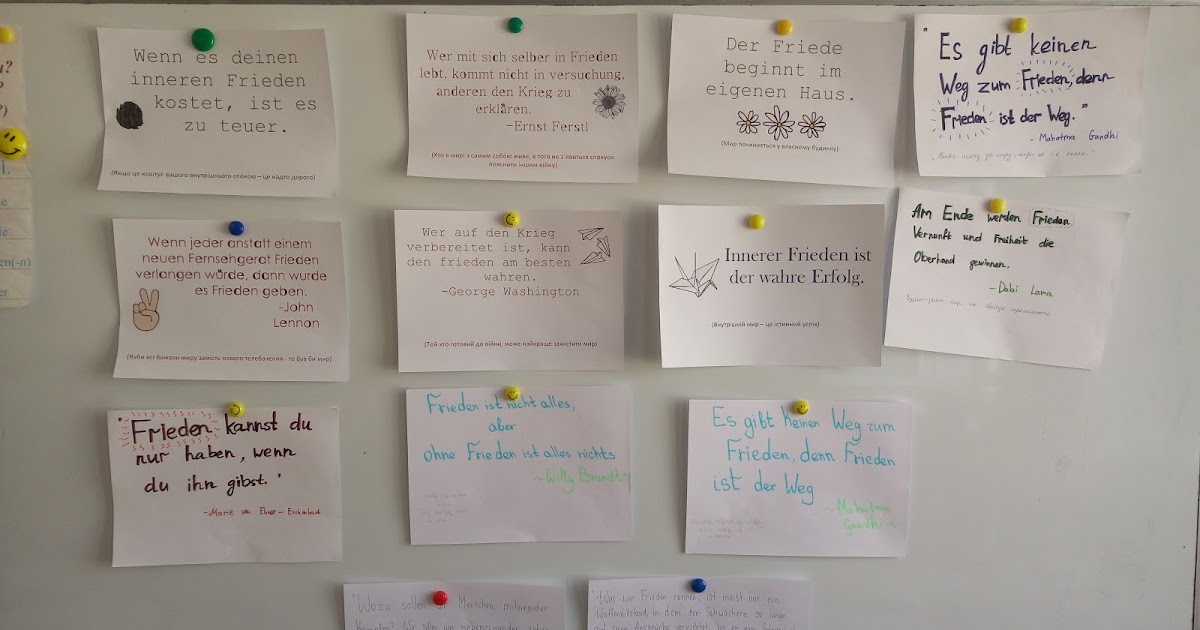 Wenn es deinen
inneren Frieden
kostet, ist es
zu teuer.
(Якщо це коштує вашого внутрішнього спокою – це надто дорого)
Wer mit sich selber in Frieden
lebt, kommt nicht in versuchung,
anderen den Krieg zu
erklären.
-Ernst Ferstl
(Хто в мирі з самим собою живе, в того не з'явиться спокуси
пояснити іншим війну)
Der Friede
beginnt im
eigenen Haus.
(Мир починається у власному будинку)
"Es gibt keinen
Weg zum Frieden, denn
Frieden ist der Weg."
- Mahatma Gandhi
Wenn jeder anstatt einem
neuen Fernsehgerät Frieden
verlangen würde, dann würde
es Frieden geben.
-John
Lennon
(Якби всі бажали миру замість нового телебачення - то був би мир)
Wer auf den Krieg
verbereitet ist, kann
den frieden am besten
wahren.
-George Washington
(Той хто готовий до війни, може найкраще захистити мир)
Innerer Frieden ist
der wahre Erfolg.
(Внутрішній мир – це істинний успіх)
Am Ende werden Frieden
Vernunft und Freiheit die
Oberhand gewinnen.
- Dalai Lama
"Frieden kannst du
nur haben, wenn
du ihn gibst."
- Marie von Ebner - Eschenbach
Frieden ist nicht alles,
aber
ohne Frieden ist alles nichts
~Willy Brandt
Es gibt keinen Weg zum
Frieden, denn Frieden
ist der Weg
~Mahatma
Gandhi
"Wozu sollen Menschen miteinander
"(Was wir Frieden nennen, ist meist nur ein
Waffenstillstand, in dem der Schwächere so lange